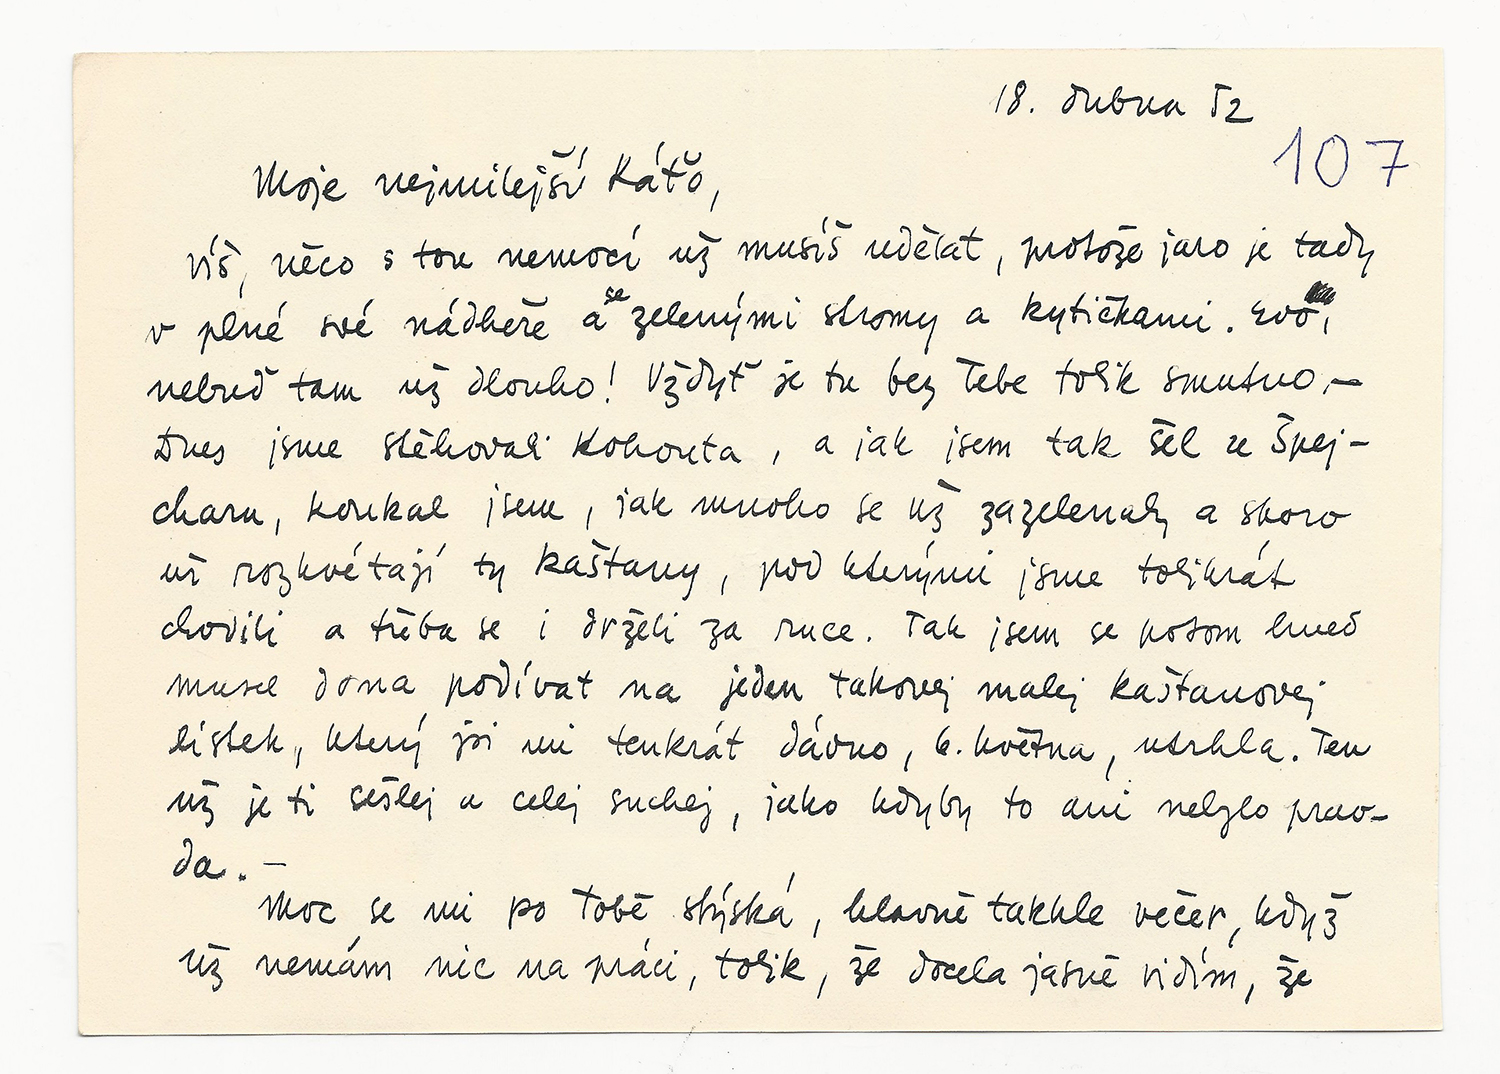 18. dubna 52
107
Moje nejmilejší Káťo,
víš, něco s tou nemocí už musíš udělat, protože jaro je tady
v plné své nádheře a se zelenými stromy a kytičkami.
nebuď tam už dlouho! Vždyť je tu bez Tebe tolik smutno. –
Dnes jsme stěhovali Kohouta, a jak jsem tak šel ze Špej-
charu, koukal jsem, jak mnoho se už zazelenaly a skoro
už rozkvétají ty kaštany, pod kterými jsme tolikrát
chodili a třeba se i drželi za ruce. Tak jsem se potom hned
musel doma podívat na jeden takovej malej kaštanovej
lístek, který jsi mi tenkrát dávno, 6. května, utrhla. Ten
už je ti sešlej a celej suchej, jako kdyby to ani nebylo prav-
da. –
Moc se mi po Tobě stýská, hlavně takhle večer, když
už nemám nic na práci, tolik, že docela jasně vidím, že